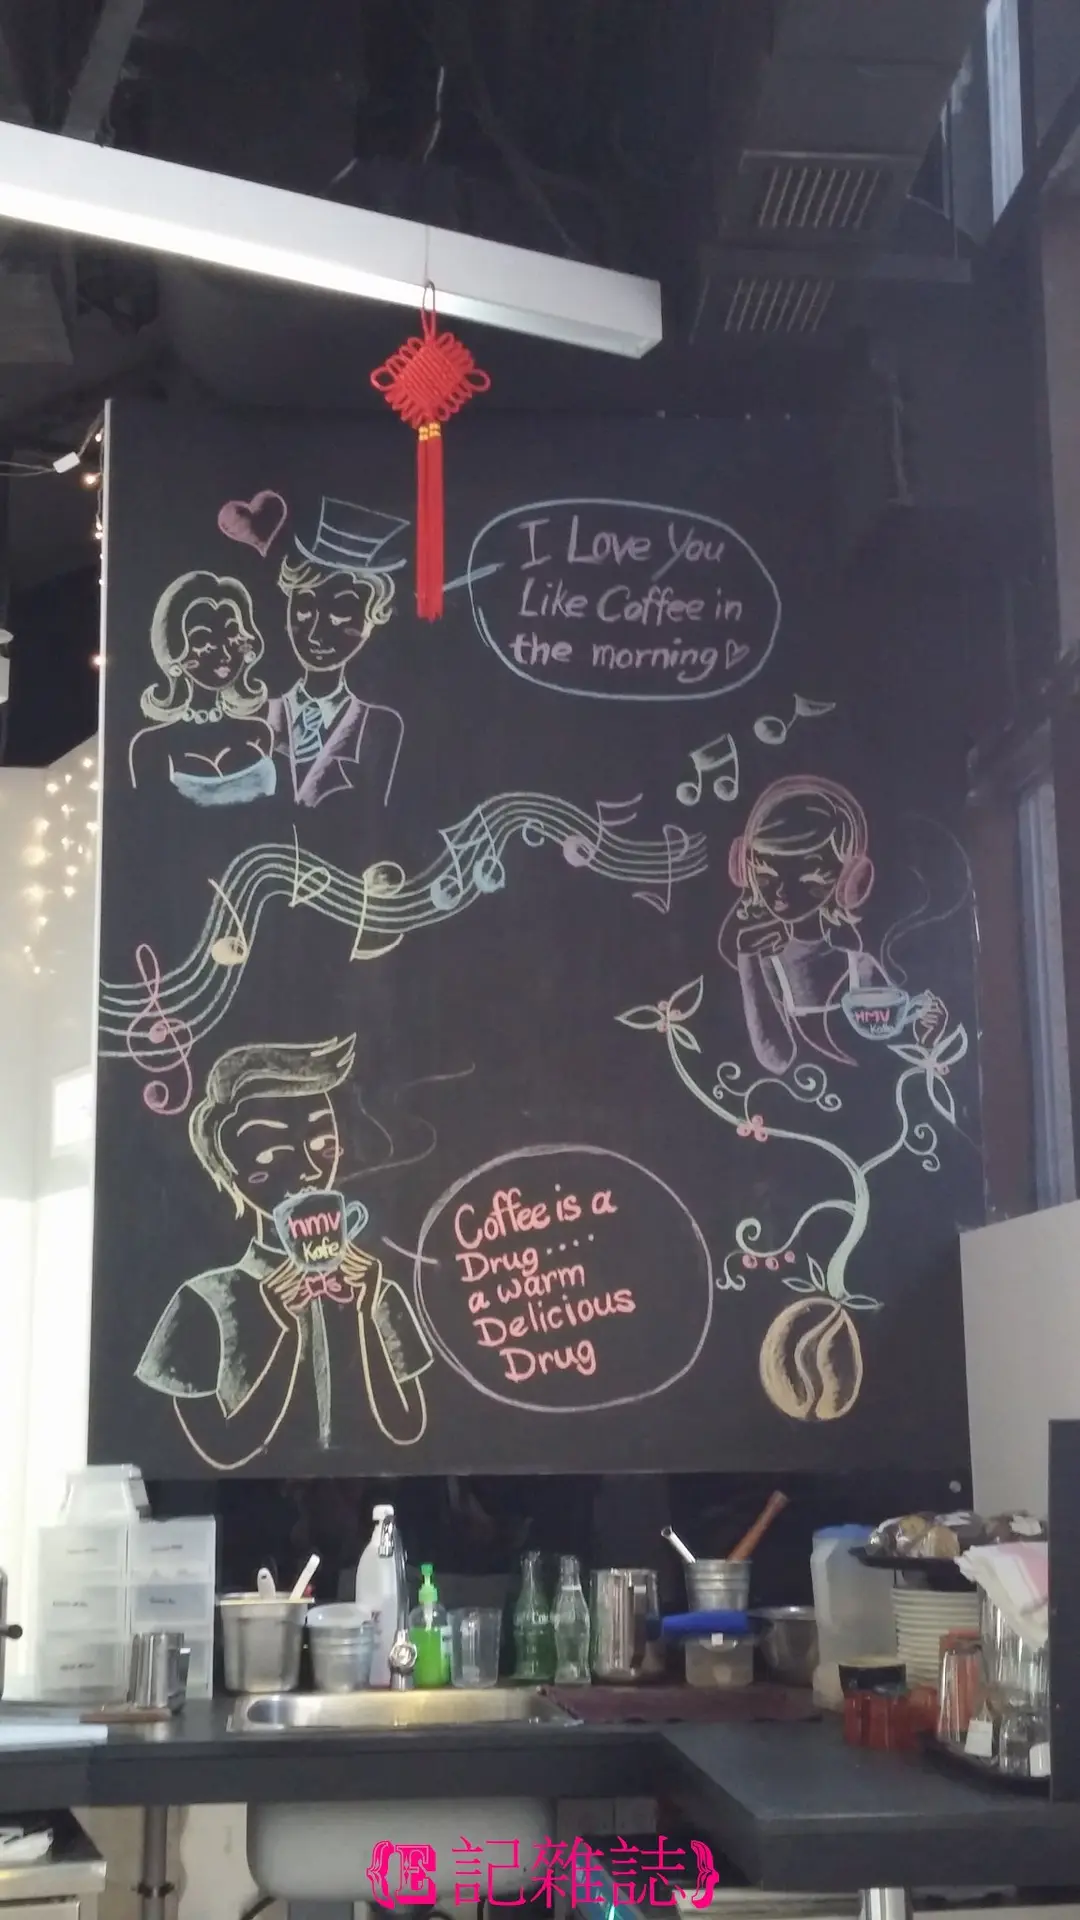 I Love You
Like Coffee in
the morning
HMV
Kafe
hmv
Kafe
Coffee is a
Drug....
a warm
Delicious
Drug
{E 記雜誌}